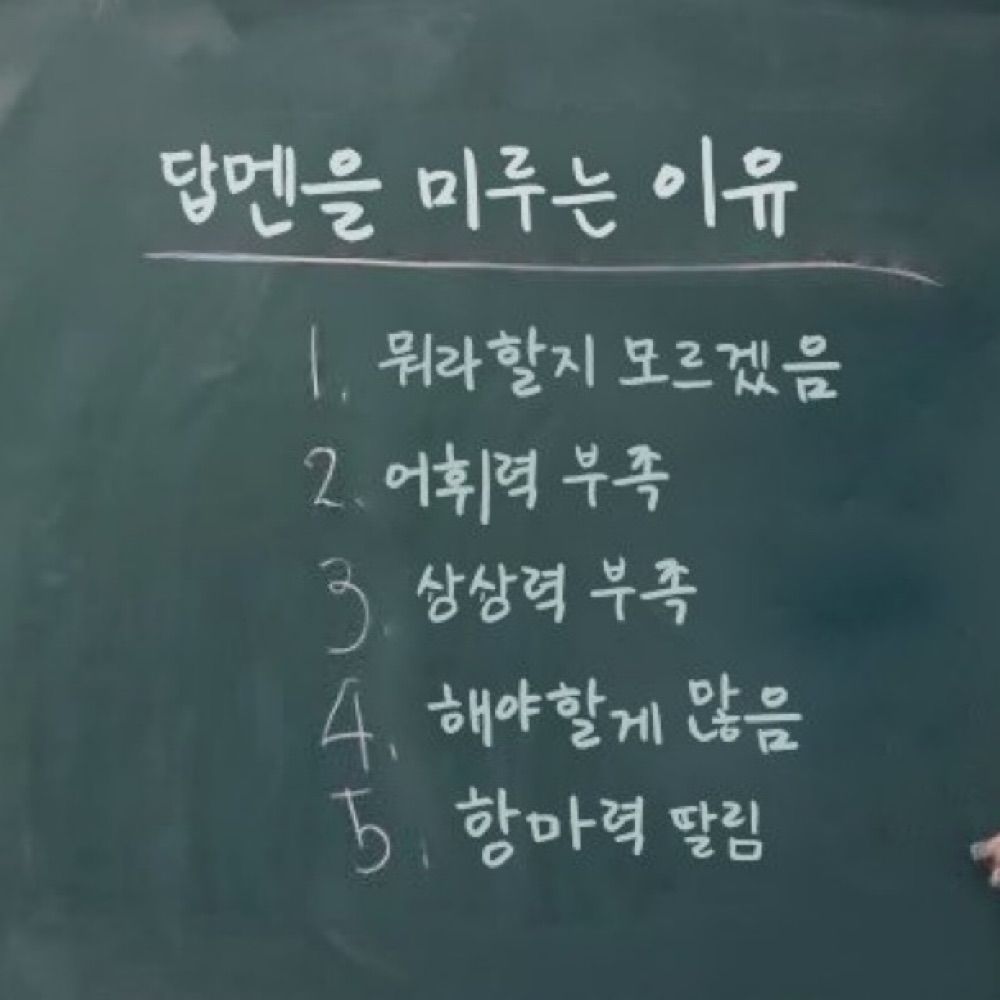 답멘을 미루는 이유
1. 뭐라할지 모르겠음
2. 어휘력 부족
3. 상상력 부족
4. 해야할게 많음
5. 항마력 딸림